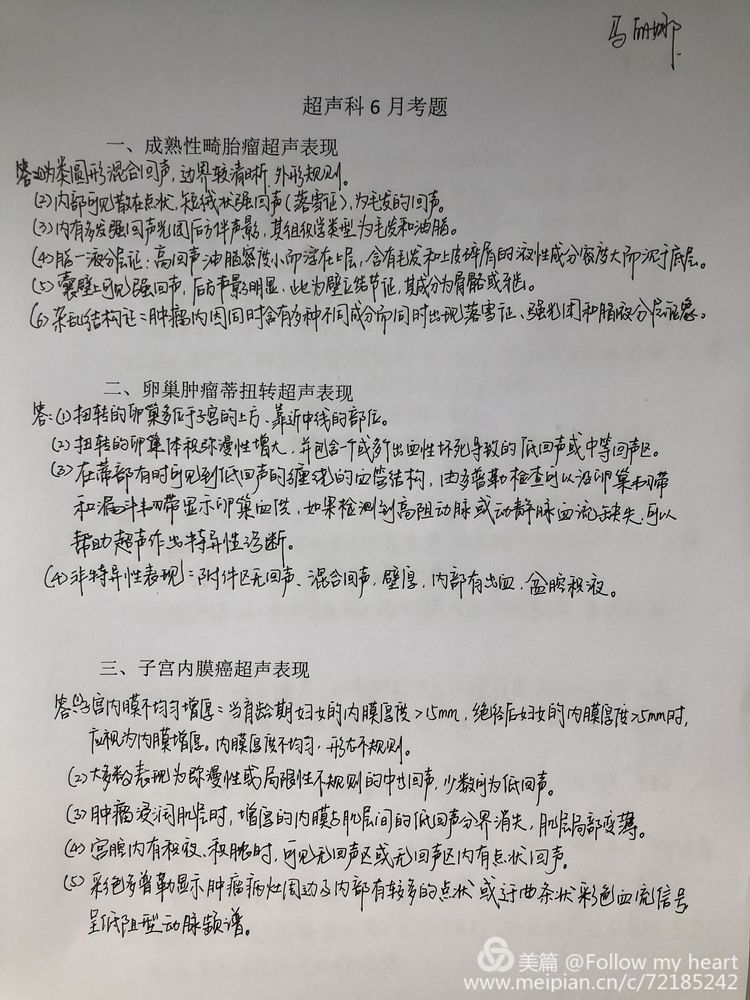 马丽娜
超声科6月考题
一、成熟性畸胎瘤超声表现
答:(1)为类圆形混合回声,边界较清晰,外形规则。
(2)内部可见散在点状、短线状强回声(落雪征),为毛发的回声。
(3)内有多发强回声光团后方伴声影,其组织学类型为毛发和油脂。
(4)脂-液分层征:高回声油脂密度小而浮在上层,含有毛发和上皮碎屑的液性成分密度大而沉于底层。
(5)囊壁上可见强回声,后方声影明显、此为壁立结节征,其成分为骨骼或牙齿。
(6)杂乱结构征:肿瘤内因同时含有多种不同成分而同时出现落雪征、强光团和脂液分层征象。
二、卵巢肿瘤蒂扭转超声表现
答:(1)扭转的卵巢多位于子宫的上方、靠近中线的部位。
(2)扭转的卵巢体积弥漫性增大,并包含一个或多个出血性坏死导致的低回声或中等回声区。
(3)在蒂部有时可见到低回声的缠绕的血管结构,由多普勒检查可以沿卵巢韧带
和漏斗韧带显示卵巢血供,如果检测到高阻动脉或动静脉血流缺失,可以
帮助超声作出特异性诊断。
(4)非特异性表现:附件区无回声、混合回声,壁厚,内部有出血,盆腔积液。
三、子宫内膜癌超声表现
答:(1)子宫内膜不均匀增厚:当育龄期妇女的内膜厚度>15mm,绝经后妇女的内膜厚度>5mm时,
应视为内膜增厚。内膜厚度不均匀,形态不规则。
(2)大多数表现为弥漫性或局限性不规则的中等回声,少数可为低回声。
(3)肿瘤浸润肌层时,增厚的内膜与肌层间的低回声分界消失,肌层局部变薄。
(4)宫腔内有积液、积脓时,可见无回声区或无回声区内有点状回声。
(5)彩色多普勒显示肿瘤病灶周边及内部有较多的点状或迂曲条状彩色血流信号
呈低阻型动脉频谱。
美篇 @Follow my heart
www.meipian.cn/c/72185242